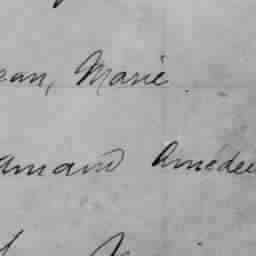 ean, Marie
amand Amedee